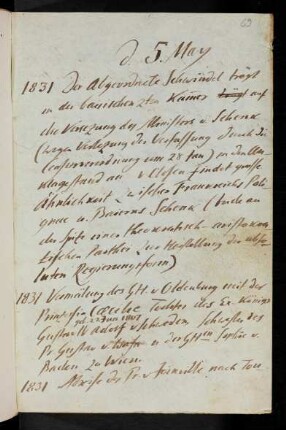 63
d. 5. May
1831 Der Abgeordnete Schwindel trägt
in der bairischen 2ten Kamer auf
die Versezung des Ministers v Schenk
(wegen Verlezung der Verfassung durch die
Censurverordnung vom 28 Jan) in den An
klagestand an. v Closen findet große
Ähnlichkeit zwischen Frankreichs Poli
gnac u. Baierns Schenk (beide an
der Spitze einer theokratisch aristokra
tischen Parthei zur Herstellung der abso
luten Regierungsform)
1831 Vermälung des GH v Oldenburg mit der
Prinzeßin Cäcilie Tochter des Ex Königs
Gustav IV Adolf v Schweden Schwester des
Pr Gustav v u der GHin Sophie v
Baden zu Wien.
1831 Abreise des Pr v Joinville nach Tou